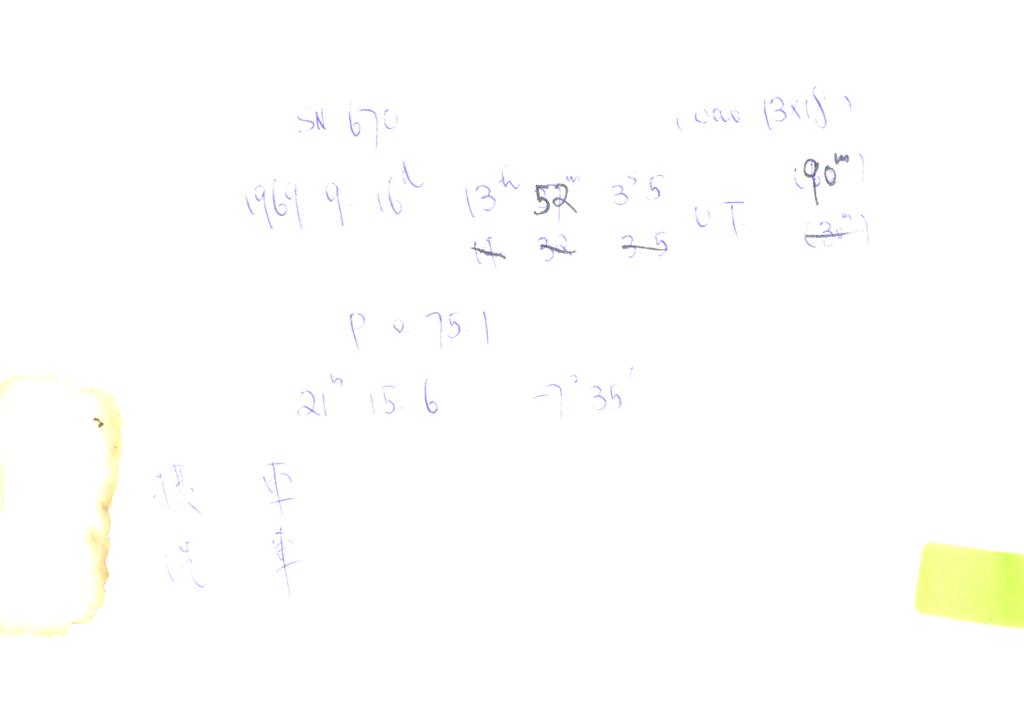 SN 670 (OAO 13×18)
1969 9. 16d 13h 52m 3s5 U.T. (90m)
14 32 35 (30m)
P 0.75.1
21h 15.6 -7° 35'